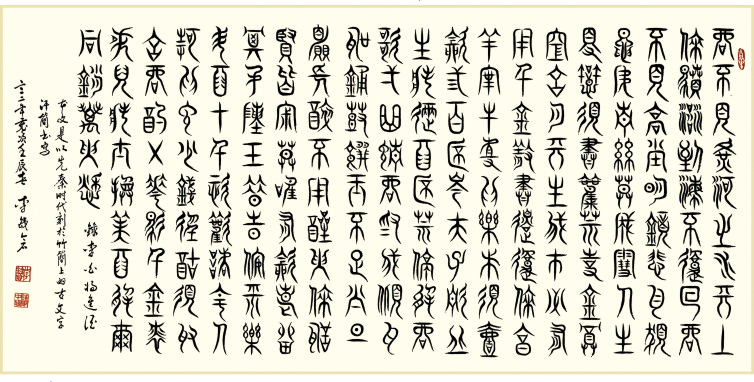 君不見黃河之水天上
來奔流到海不復回君
不見高堂明鏡悲白髮
朝如青絲暮成雪人生
得意須盡歡莫使金樽
空對月天生我材必有
用千金散盡還復來烹
羊宰牛且為樂會須一
飲三百杯岑夫子丹丘
生將進酒杯莫停與君
歌一曲請君為我傾耳
聽鐘鼓饌玉不足貴但
願長醉不願醒古來聖
賢皆寂寞惟有飲者留
其名陳王昔時宴平樂
斗酒十千恣歡謔主人
何為言少錢徑須沽取
對君酌五花馬千金裘
呼兒將出換美酒與爾
同銷萬古愁
錄李白將進酒
本文是以先秦時代刻於竹簡上的古文字
汗簡書寫
歲次壬辰春